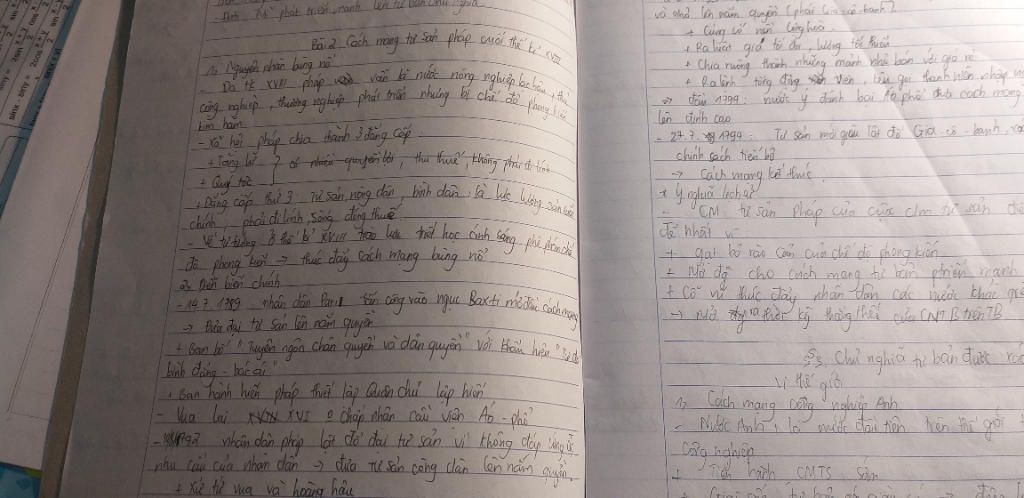 - Anh, Mĩ phát triển mạnh lên tư bản chủ nghĩa
Bài 2: Cách mạng tư sản pháp cuối thế kỉ XVIII
1, Nguyên nhân bùng nổ
- Do tk XVIII pháp vẫn là nước nông nghiệp lạc hậu, thủ
công nghiệp, thương nghiệp phát triển nhưng bị chế độ phong kiến
kìm hãm
- Xã hội pháp chia thành 3 đẳng cấp:
+ Tăng lữ
+ Quý tộc
} có nhiều quyền lợi, thu thuế, không phải đi lính
+ Đẳng cấp thứ 3: Tư sản, nông dân, bình dân: là lực lượng sản xuất
chính, phải đi lính, sống đóng thuế
- Về tư tưởng ở thế kỉ XVIII trào lưu triết học ánh sáng phê phán chế
độ phong kiến → thúc đẩy cách mạng bùng nổ
2, Diễn biến chính
- 14.7.1789 nhân dân Pari tấn công vào ngục Baxti mở đầu cách mạng
→ Đưa đại tư sản lên nắm quyền
+ Ban bố "Tuyên ngôn nhân quyền và dân quyền" với khẩu hiệu "Tự do
bình đẳng - bác ái"
+ Ban hành hiến pháp thiết lập Quân chủ lập hiến
- Vua lui XVI chấp nhận cầu viện Áo - phổ
- 1792 nhân dân pháp lật đổ đại tư sản vì không đáp ứng
nhu cầu của nhân dân → đưa tư sản công dân lên nắm quyền
+ Xử tử vua và hoàng hậu
và nhỏ lên nắm quyền (phái Gia-cô-banh)
+ Củng cố nền cộng hoà
+ Ra luật giá tối đa, lương tối thiểu
+ Chia ruộng thành những mảnh nhỏ bán với giá rẻ
+ Ra lệnh tổng động viên, kêu gọi thanh niên nhập ngũ
=> đầu 1794: nước ý đánh bại Áo phổ đưa cách mạng
lên đỉnh cao
- 27.7.1794: Tư sản mới giàu lật đổ Gia-cô-banh,
chính sách tiến bộ
→ Cách mạng kết thúc
* Ý nghĩa lịch sử
- CM tư sản Pháp của cuộc c/m tư sản
để nhất vì
+ gạt bỏ rào cản của chế độ phong kiến
+ Mở đg cho cách mạng tư bản phát triển mạnh
+ Cổ vũ thúc đẩy nhân dân các nước khác
→ Mở thời kỳ thắng thế của CNTB trên TG
§3, Chủ nghĩa tư bản được xác
vi thế giới
1, Cách mạng công nghiệp Anh
- Nước Anh là nước đầu tiên trên thế giới
công nghiệp
+ Tiến hành CMTS sớm